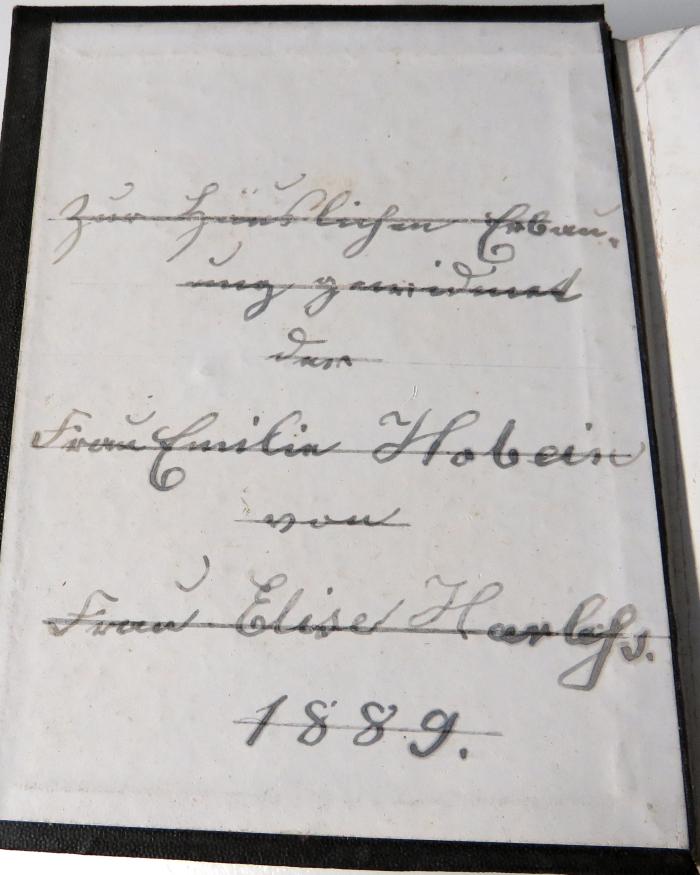 Zur Häuslichen Erbau-
ung gewidmet
der
Frau Emilie Hobein
von
Frau Elise
1889.